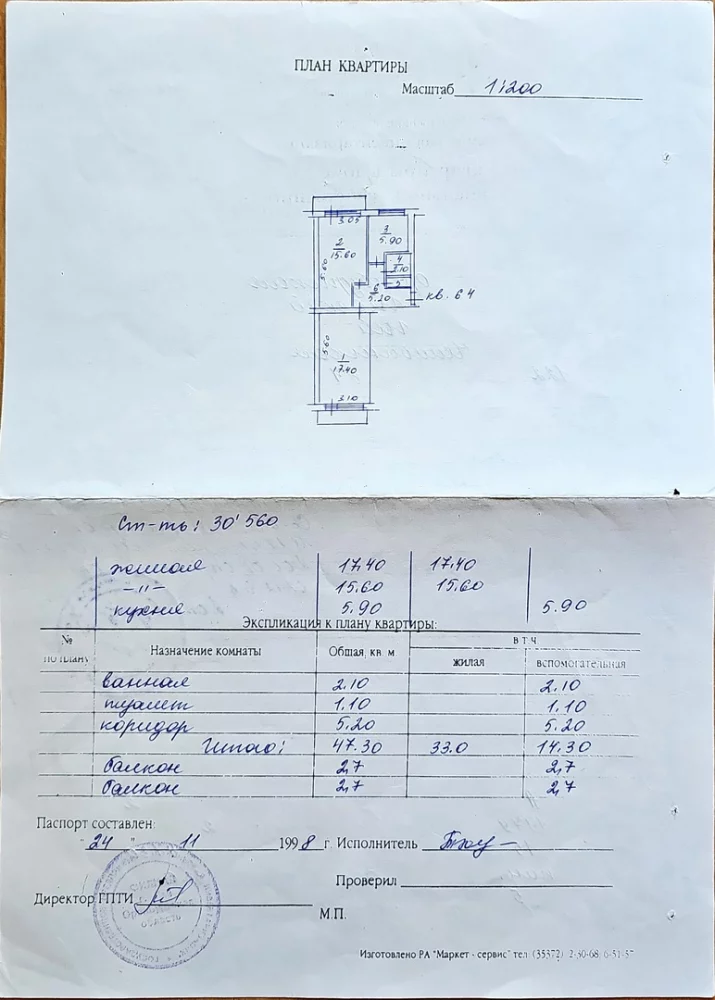 ПЛАН КВАРТИРЫ
Масштаб 1:200
3.05
2
15.60
5.60
3
5.90
4
2.10
5
6
5.20
кв. 64
5.60
1
17.40
3.10
Ст-ть: 30'560
жилая 17.40 17.40
—"— 15.60 15.60
кухня 5.90 5.90
Экспликация к плану квартиры:
№ по плану Назначение комнаты Общая, кв. м в т.ч
жилая вспомогательная
ванная 2.10 2.10
туалет 1.10 1.10
коридор 5.20 5.20
Итого: 47.30 33.0 14.30
балкон 2,7 2,7
балкон 2,7 2,7
Паспорт составлен:
24 " 11 1998 г. Исполнитель
Проверил
Директор ГПТИ
М.П.
Изготовлено РА "Маркет - сервис" тел. (35372) 2-30-68, 6-51-57